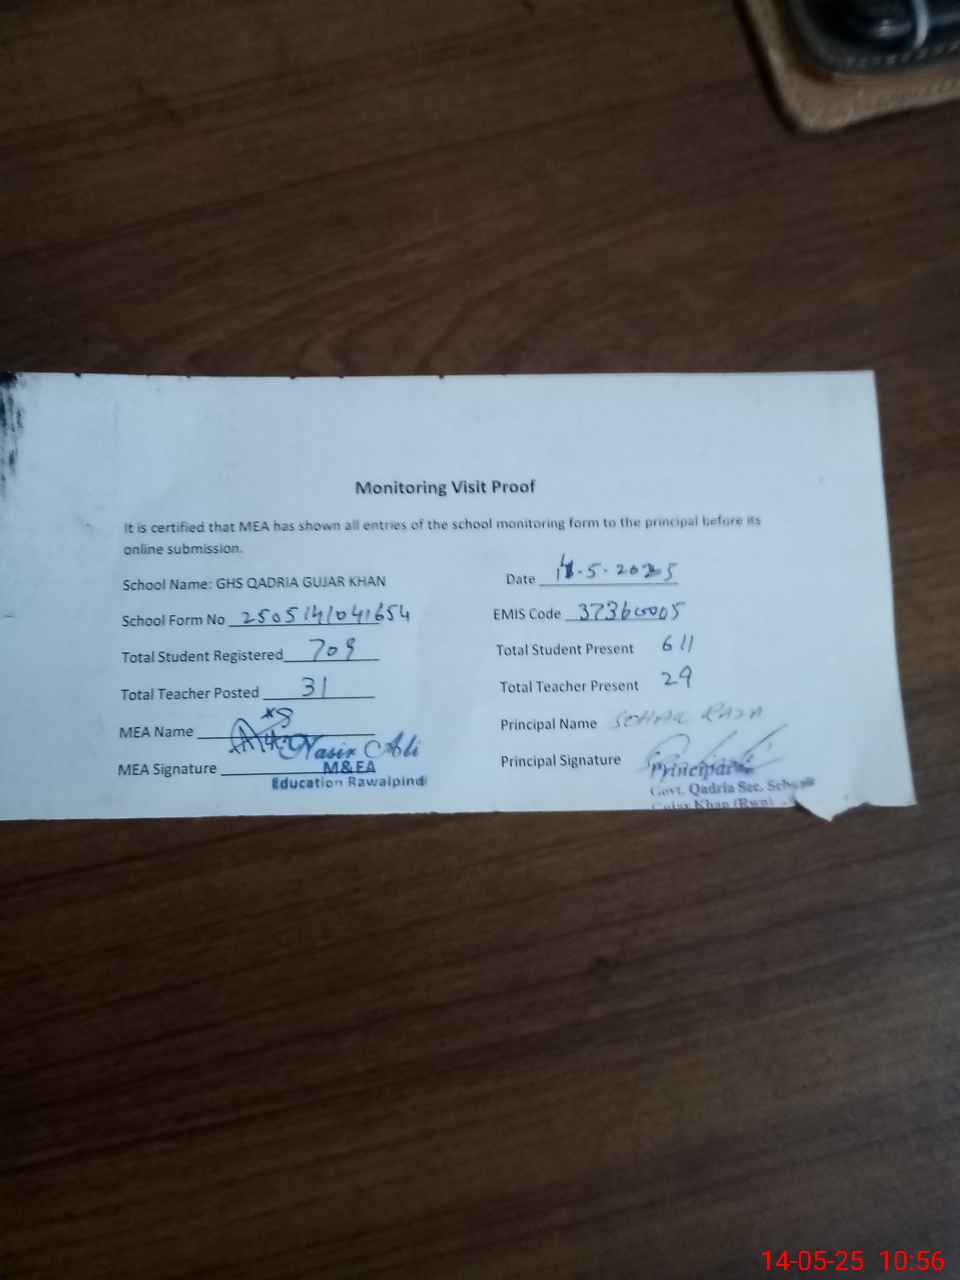 Monitoring Visit Proof
It is certified that MEA has shown all entries of the school monitoring form to the principal before its
online submission.
School Name: GHS QADRIA GUJAR KHAN
Date 14-5-2025
School Form No 2505141041654
EMIS Code 37360005
Total Student Registered 709
Total Student Present 611
Total Teacher Posted 31
Total Teacher Present 29
MEA Name
Principal Name SOHAIL RAZA
MEA Signature Nasir Ali
M&EA
Education Rawalpindi
Principal Signature
Principal
Govt. Qadria Sec. School
Gujar Khan (Rwp)
14-05-25 10:56